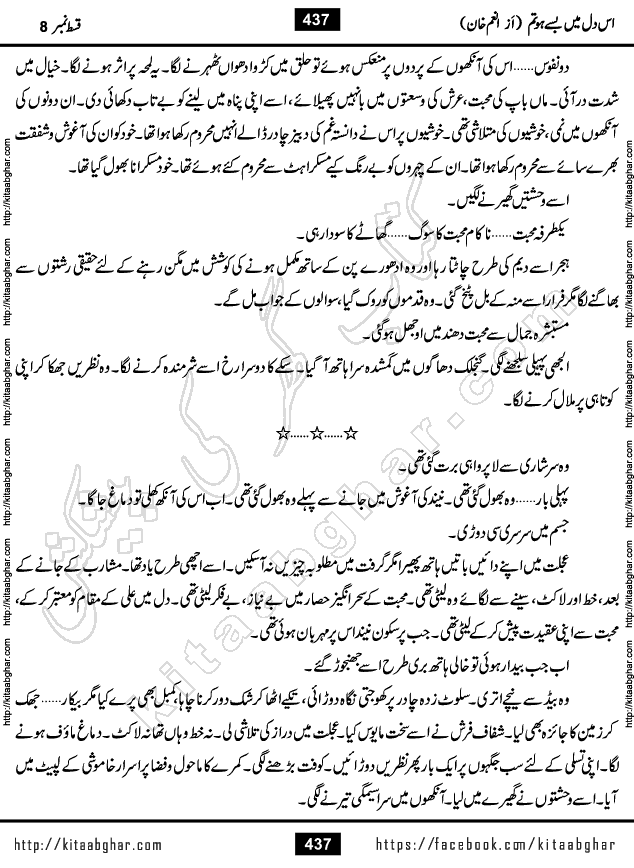 اس دل میں بسے ہو تم (از انعم خان)
437
قسط نمبر 8
دو نفوس......اس کی آنکھوں کے پردوں پر منعکس ہوئے تو حلق میں کڑوا دھواں ٹھہرنے لگا۔ یہ لمحہ پر اثر ہونے لگا۔ خیال میں
شدت در آئی۔ ماں باپ کی محبت، عرش کی وسعتوں میں بانہیں پھیلائے، اسے اپنی پناہ میں لینے کو بے تاب دکھائی دی۔ ان دونوں کی
آنکھوں میں نمی، خوشیوں کی متلاشی تھی۔ خوشیوں پر اس نے دانستہ غم کی دبیز چادر ڈالے انہیں محروم رکھا ہوا تھا۔ خود کو ان کی آغوش و شفقت
بھرے سائے سے محروم رکھا ہوا تھا۔ ان کے چہروں کو بے رنگ کیے مسکراہٹ سے محروم کئے ہوئے تھا۔ خود مسکرانا بھول گیا تھا۔
اسے وحشتیں گھیرنے لگیں۔
یکطرفہ محبت......ناکام محبت کا سوگ......گھاٹے کا سودا رہی۔
ہجر اسے دیم کی طرح چاٹتا رہا اور وہ ادھورے پن کے ساتھ مکمل ہونے کی کوشش میں مگن رہنے کے لئے حقیقی رشتوں سے
بھاگنے لگا مگر فرار اسے منہ کے بل پٹخ گئی۔ وہ قدموں کو روک گیا، سوالوں کے جواب مل گئے۔
مستبشرہ جمال سے محبت دھند میں اوجھل ہو گئی۔
الجھی پہیلی سلجھنے لگی۔ گنجلک دھاگوں میں گمشدہ سرا ہاتھ آ گیا۔ سکے کا دوسرا رخ اسے شرمندہ کرنے لگا۔ وہ نظریں جھکا کر اپنی
کوتاہی پر ملال کرنے لگا۔
☆......☆......☆
وہ سرشاری سے لاپرواہی برت گئی تھی۔
پہلی بار......وہ بھول گئی تھی۔ نیند کی آغوش میں جانے سے پہلے وہ بھول گئی تھی۔ اب اس کی آنکھ کھلی تو دماغ جاگا۔
جسم میں سرسری سی دوڑی۔
عجلت میں اپنے دائیں بائیں ہاتھ پھیرا مگر گرفت میں مطلوبہ چیزیں نہ آ سکیں۔ اسے اچھی طرح یاد تھا۔ مشارب کے جانے کے
بعد، خط اور لاکٹ، سینے سے لگائے وہ لیٹی تھی۔ محبت کے سحر انگیز حصار میں بے نیاز، بے فکر لیٹی تھی۔ دل میں علی کے مقام کو معتبر کر کے،
محبت سے اپنی عقیدت پیش کر کے لیٹی تھی۔ جب پر سکون نیند اس پر مہربان ہوئی تھی۔
اب جب بیدار ہوئی تو خالی ہاتھ بری طرح اسے جھنجوڑ گئے۔
وہ بیڈ سے نیچے اتری۔ سلوٹ زدہ چادر پر کھوجتی نگاہ دوڑائی، تکیے اٹھا کر شک دور کرنا چاہا، کمبل بھی پرے کیا مگر بیکار......جھک
کر زمین کا جائزہ بھی لیا۔ شفاف فرش نے اسے سخت مایوس کیا۔ عجلت میں دراز کی تلاشی لی۔ نہ خط وہاں تھا نہ لاکٹ۔ دماغ ماؤف ہونے
لگا۔ اپنی تسلی کے لئے سب جگہوں پر ایک بار پھر نظریں دوڑائیں۔ کوفت بڑھنے لگی۔ کمرے کا ماحول و فضا پر اسرار خاموشی کے لپیٹ میں
آیا۔ اسے وحشتوں نے گھیرے میں لیا۔ آنکھوں میں سراسیمگی تیرنے لگی۔
http://kitaabghar.com
437
https://facebook.com/kitaabghar
http://kitaabghar.com http://kitaabghar.com http://kitaabghar.com http://kitaabghar.com http://kitaabghar.com http://kitaabghar.com
http://kitaabghar.com http://kitaabghar.com http://kitaabghar.com http://kitaabghar.com http://kitaabghar.com http://kitaabghar.com
کتاب گھر کی پیشکش
kitaabghar.com